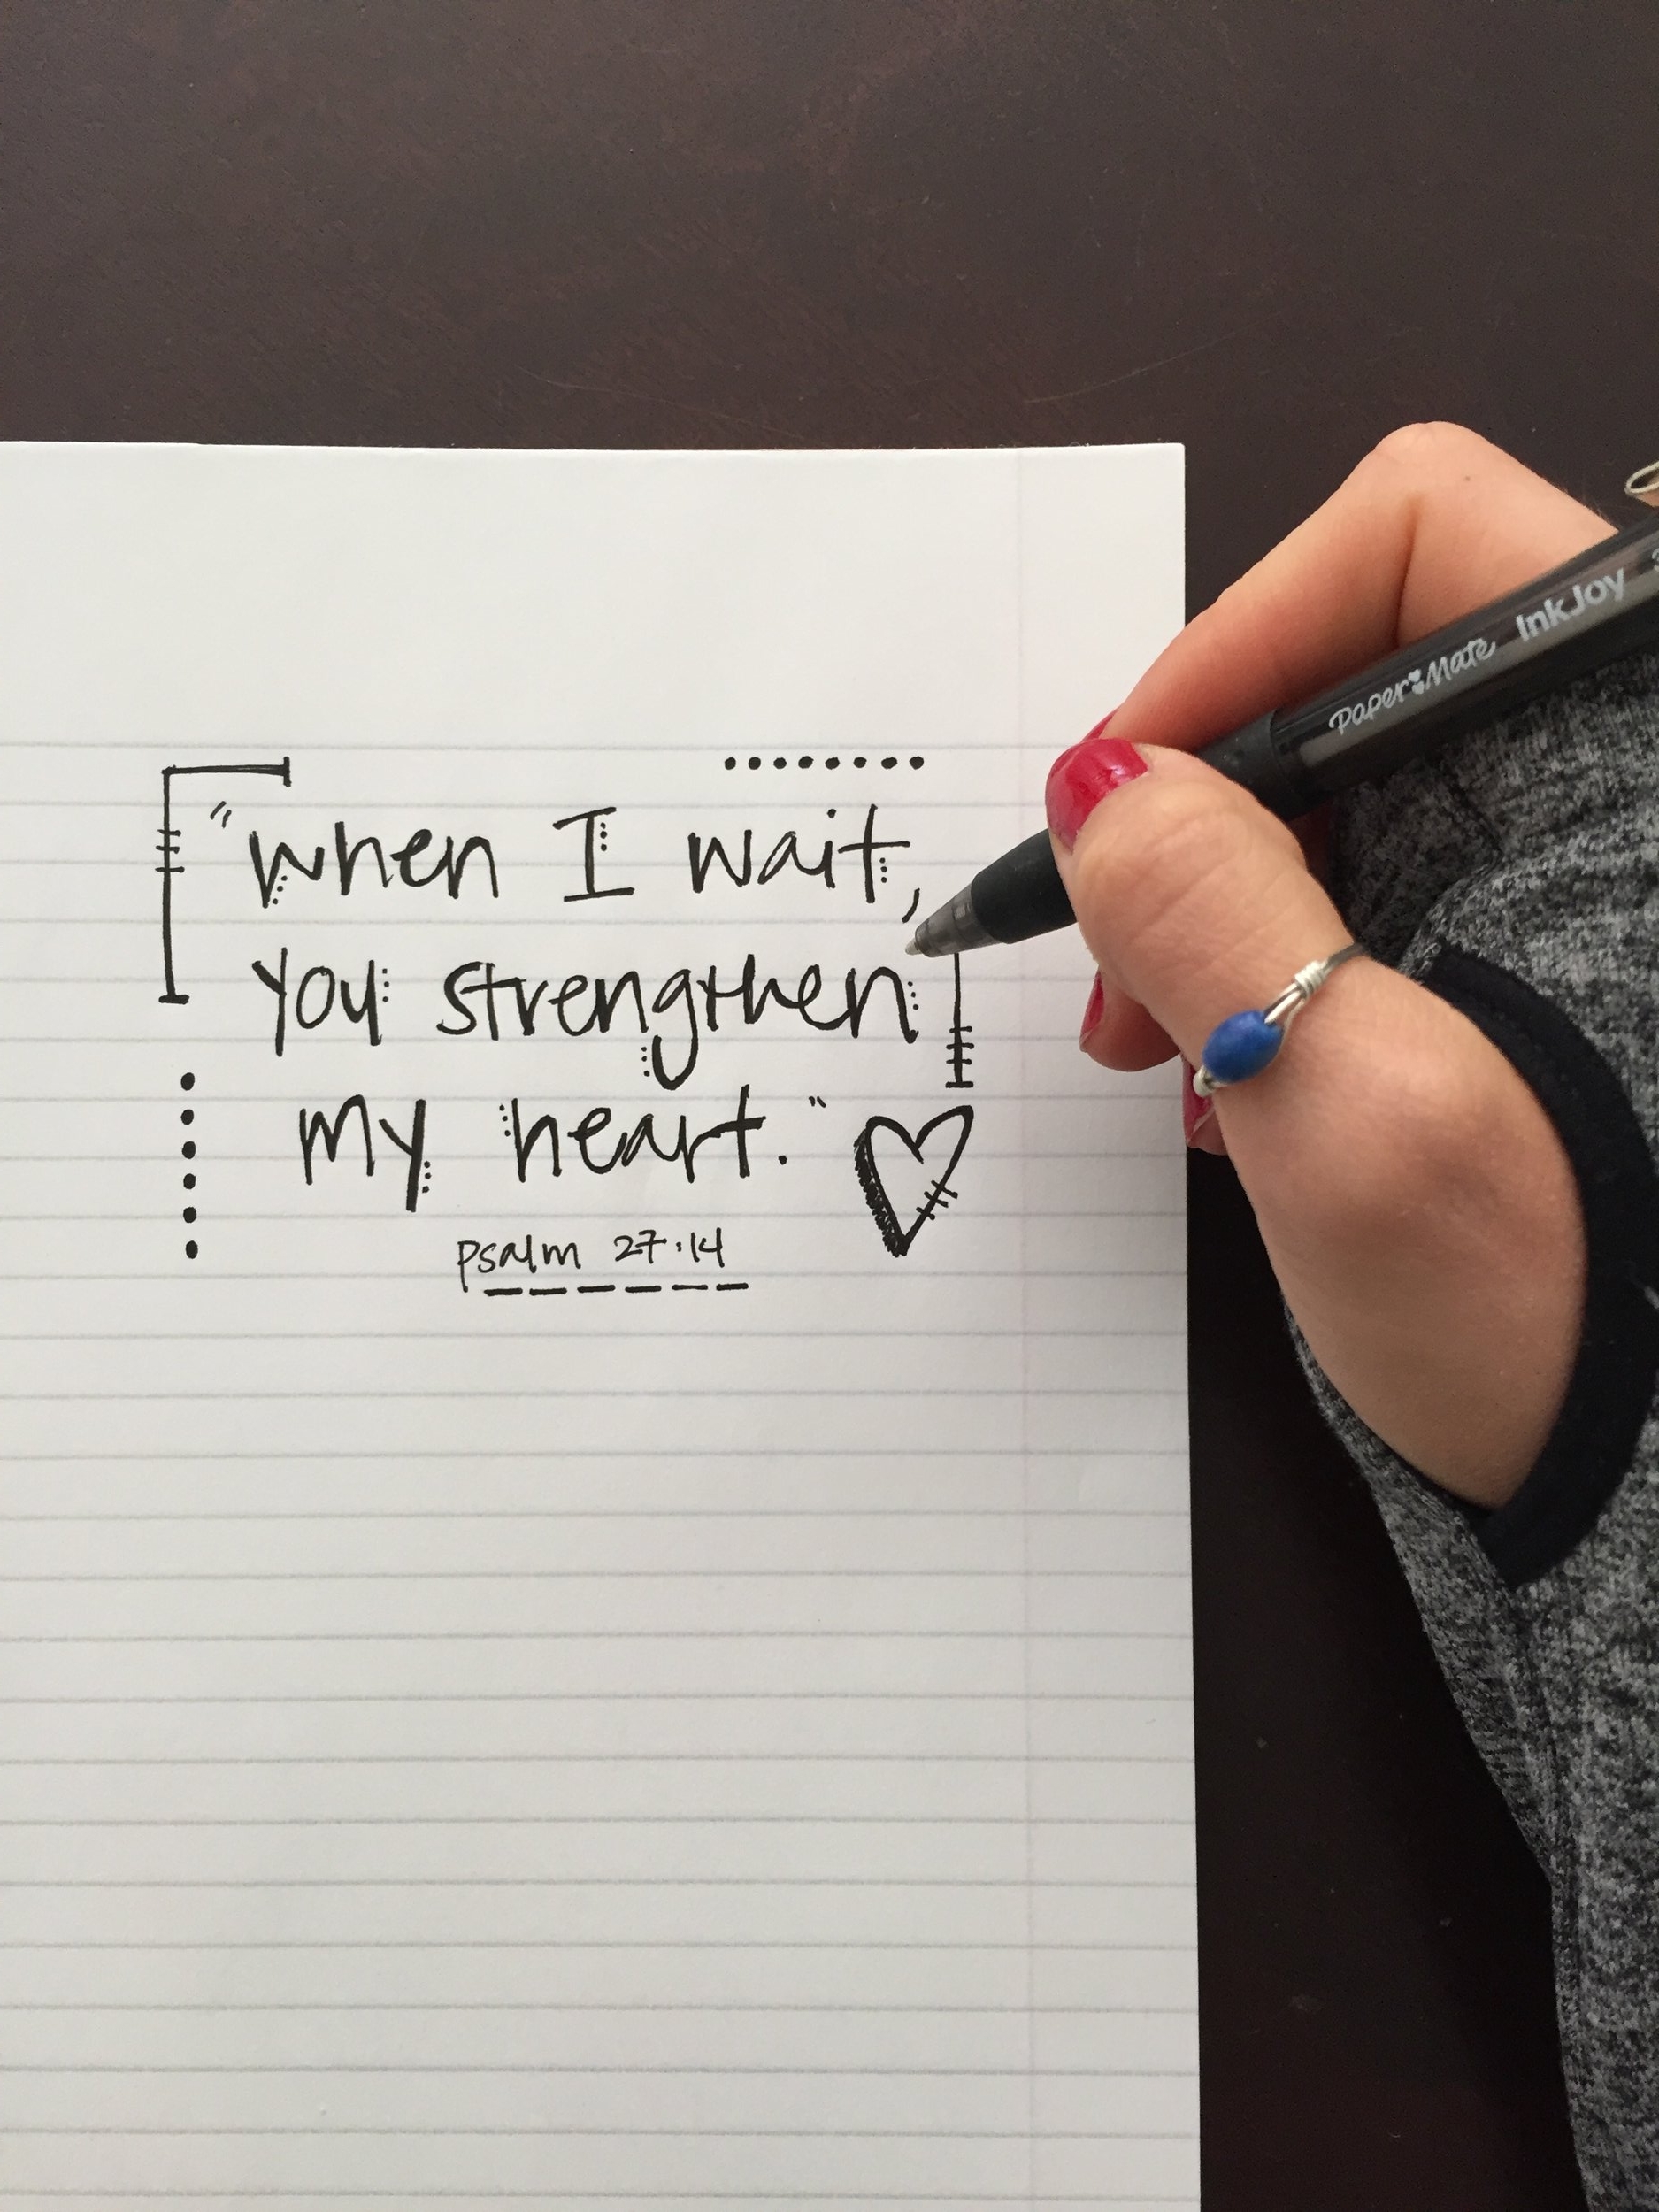 "when I wait,
you strengthen
my heart."
psalm 27:14
Paper Mate InkJoy